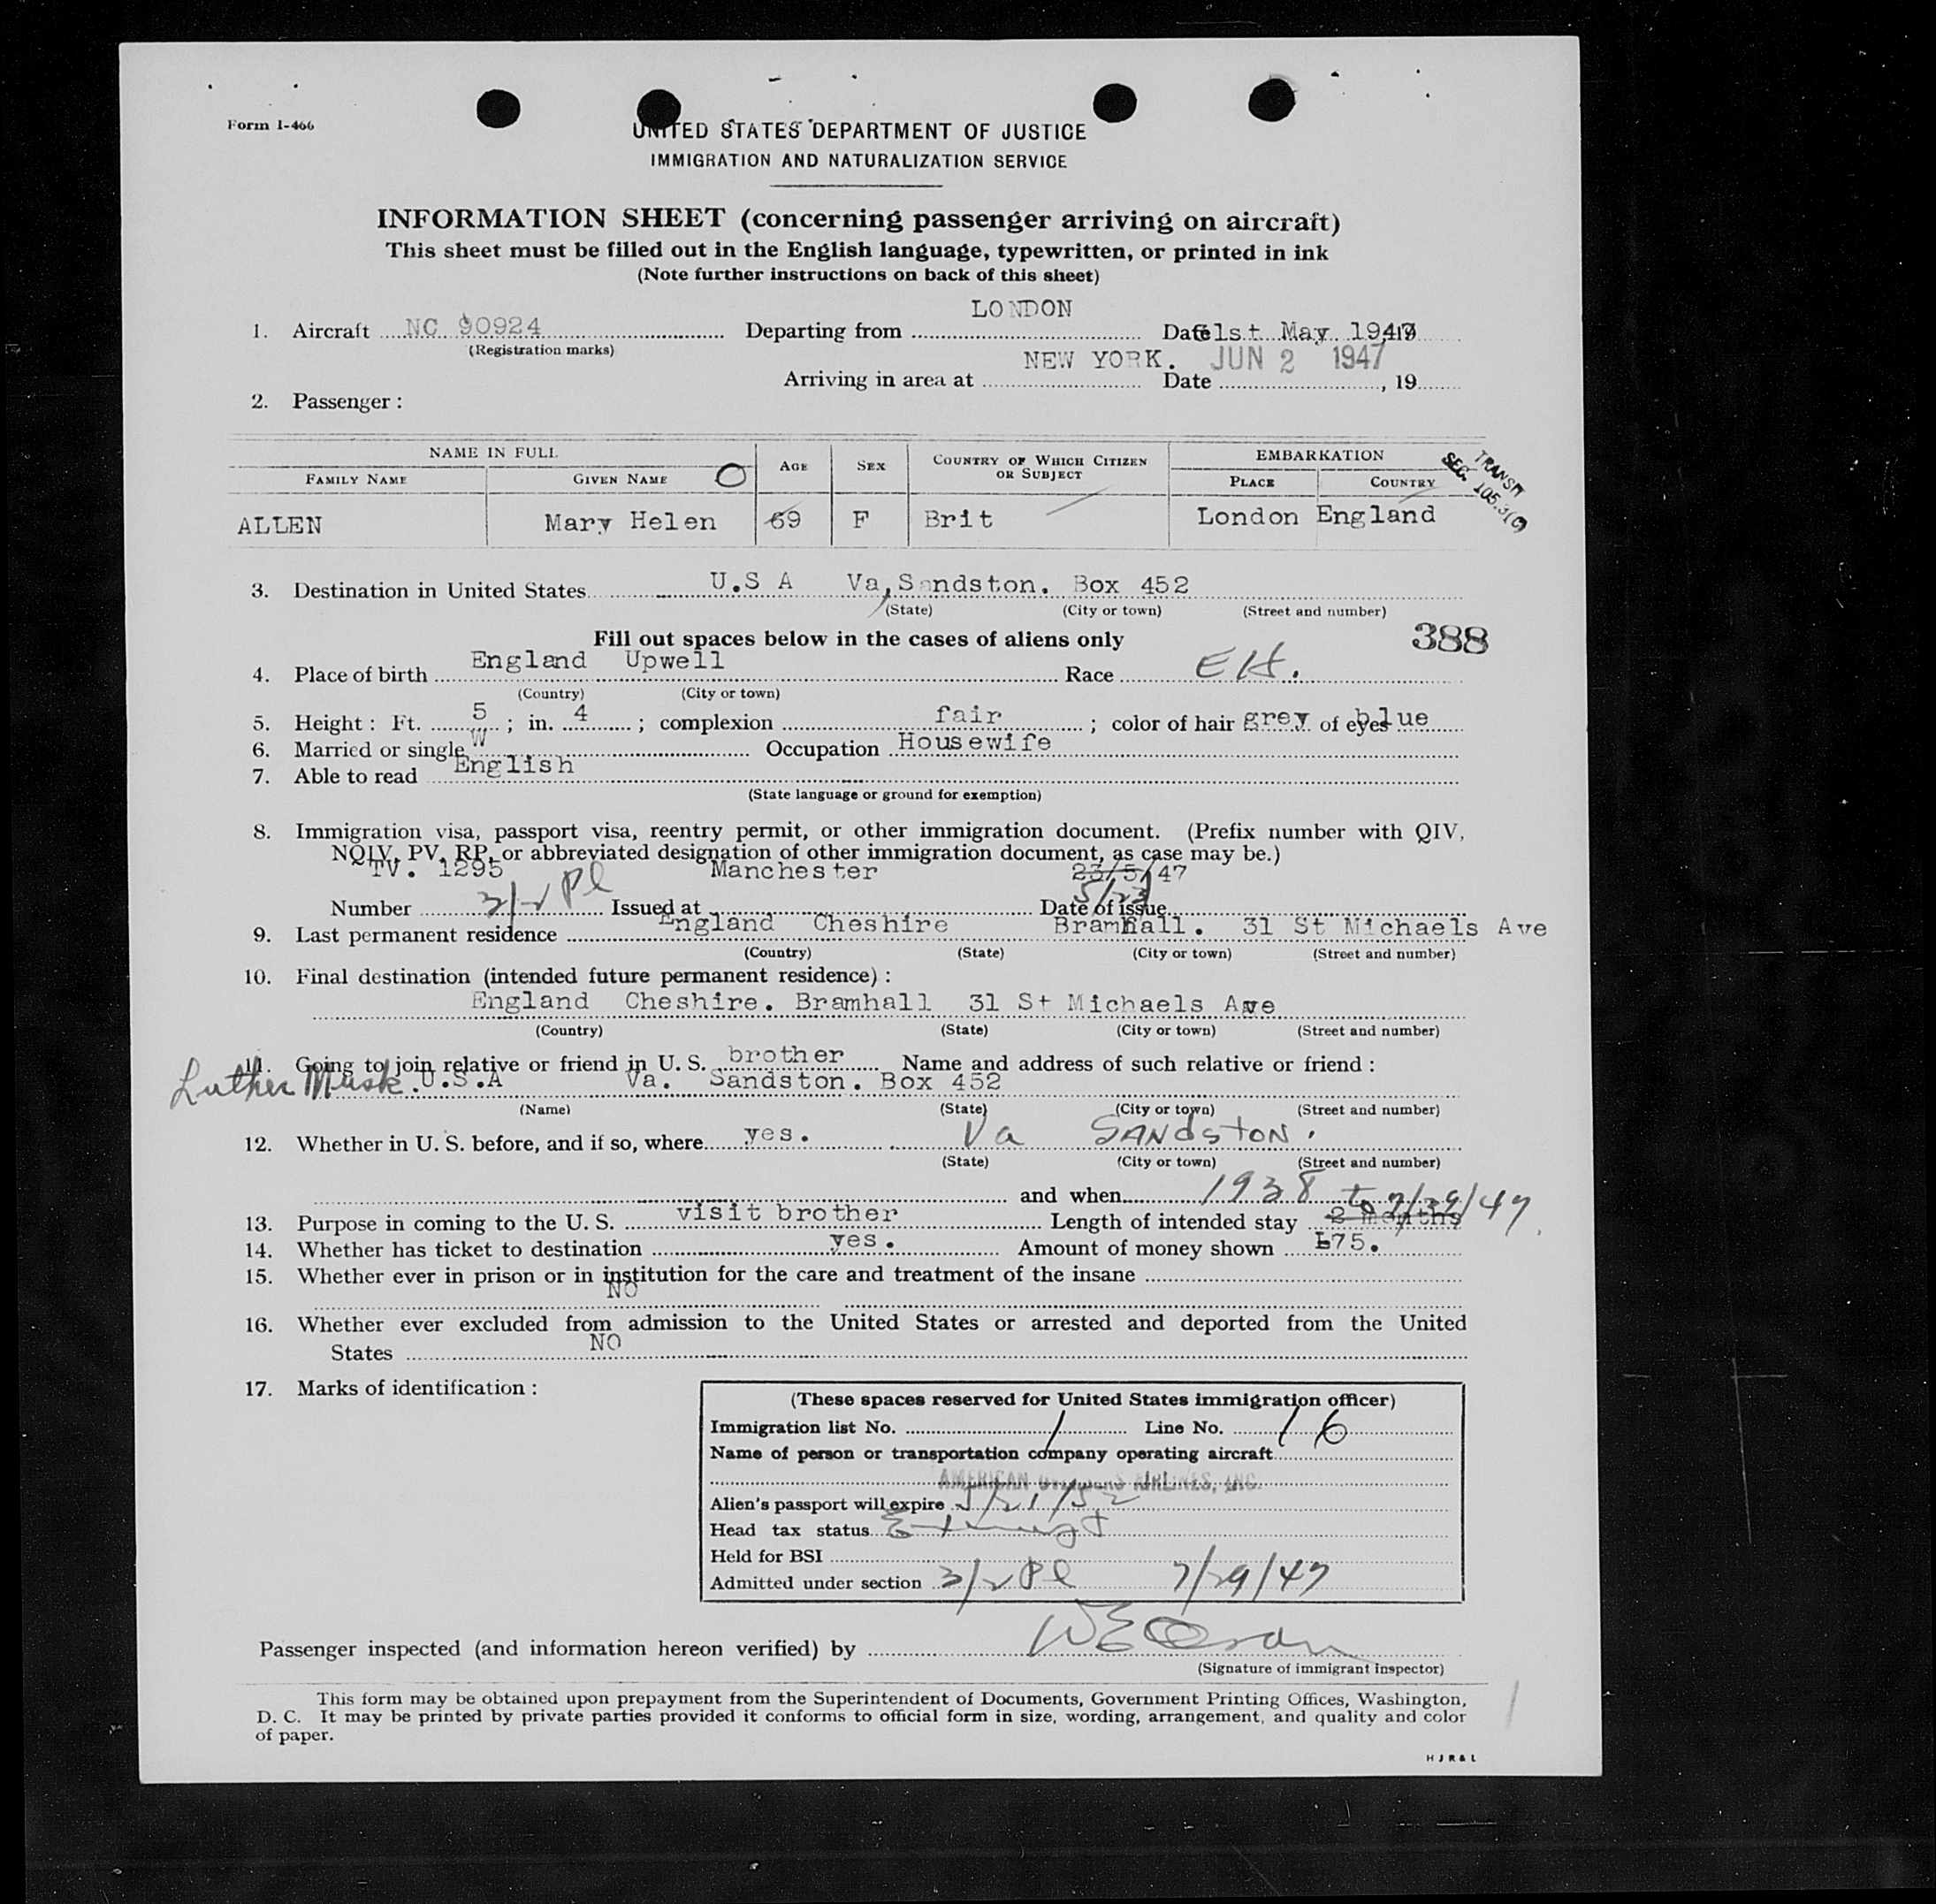 Form I-466
UNITED STATES DEPARTMENT OF JUSTICE
IMMIGRATION AND NATURALIZATION SERVICE
INFORMATION SHEET (concerning passenger arriving on aircraft)
This sheet must be filled out in the English language, typewritten, or printed in ink
(Note further instructions on back of this sheet)
LONDON
1. Aircraft NC 90924 Departing from Date 31st May 1947, 19
(Registration marks)
NEW YORK. JUN 2 1947
Arriving in area at Date , 19
2. Passenger :
NAME IN FULL AGE SEX COUNTRY OF WHICH CITIZEN OR SUBJECT EMBARKATION
FAMILY NAME GIVEN NAME PLACE COUNTRY
TRANSIT
SEC. 105.3(c)
ALLEN Mary Helen 69 F Brit London England
3. Destination in United States U.S A Va, Sandston. Box 452
(State) (City or town) (Street and number)
Fill out spaces below in the cases of aliens only 388
4. Place of birth England Upwell Race EH.
(Country) (City or town)
5. Height : Ft. 5 ; in. 4 ; complexion fair ; color of hair grey of eyes blue
6. Married or single W Occupation Housewife
7. Able to read English
(State language or ground for exemption)
8. Immigration visa, passport visa, reentry permit, or other immigration document. (Prefix number with QIV,
NQIV, PV, RP, or abbreviated designation of other immigration document, as case may be.)
TV. 1295 Manchester 23/5/47
5/23
Number 3/2 Pl Issued at Date of issue
9. Last permanent residence England Cheshire Bramhall. 31 St Michaels Ave
(Country) (State) (City or town) (Street and number)
10. Final destination (intended future permanent residence) :
England Cheshire. Bramhall 31 St Michaels Ave
(Country) (State) (City or town) (Street and number)
11. Going to join relative or friend in U. S. brother Name and address of such relative or friend :
Luther Musk. U.S.A Va. Sandston. Box 452
(Name) (State) (City or town) (Street and number)
12. Whether in U. S. before, and if so, where yes. Va SANdstoN.
(State) (City or town) (Street and number)
and when 1938
13. Purpose in coming to the U. S. visit brother Length of intended stay 2 months to 7/29/47
14. Whether has ticket to destination yes. Amount of money shown £75.
15. Whether ever in prison or in institution for the care and treatment of the insane
NO
16. Whether ever excluded from admission to the United States or arrested and deported from the United
States NO
17. Marks of identification :
(These spaces reserved for United States immigration officer)
Immigration list No. 1 Line No. 16
Name of person or transportation company operating aircraft
AMERICAN OVERSEAS AIRLINES, INC.
Alien's passport will expire 5/21/52
Head tax status Exempt
Held for BSI
Admitted under section 3/2 Pl 7/29/47
Passenger inspected (and information hereon verified) by
(Signature of immigrant inspector)
This form may be obtained upon prepayment from the Superintendent of Documents, Government Printing Offices, Washington,
D. C. It may be printed by private parties provided it conforms to official form in size, wording, arrangement, and quality and color
of paper.
H J R & L